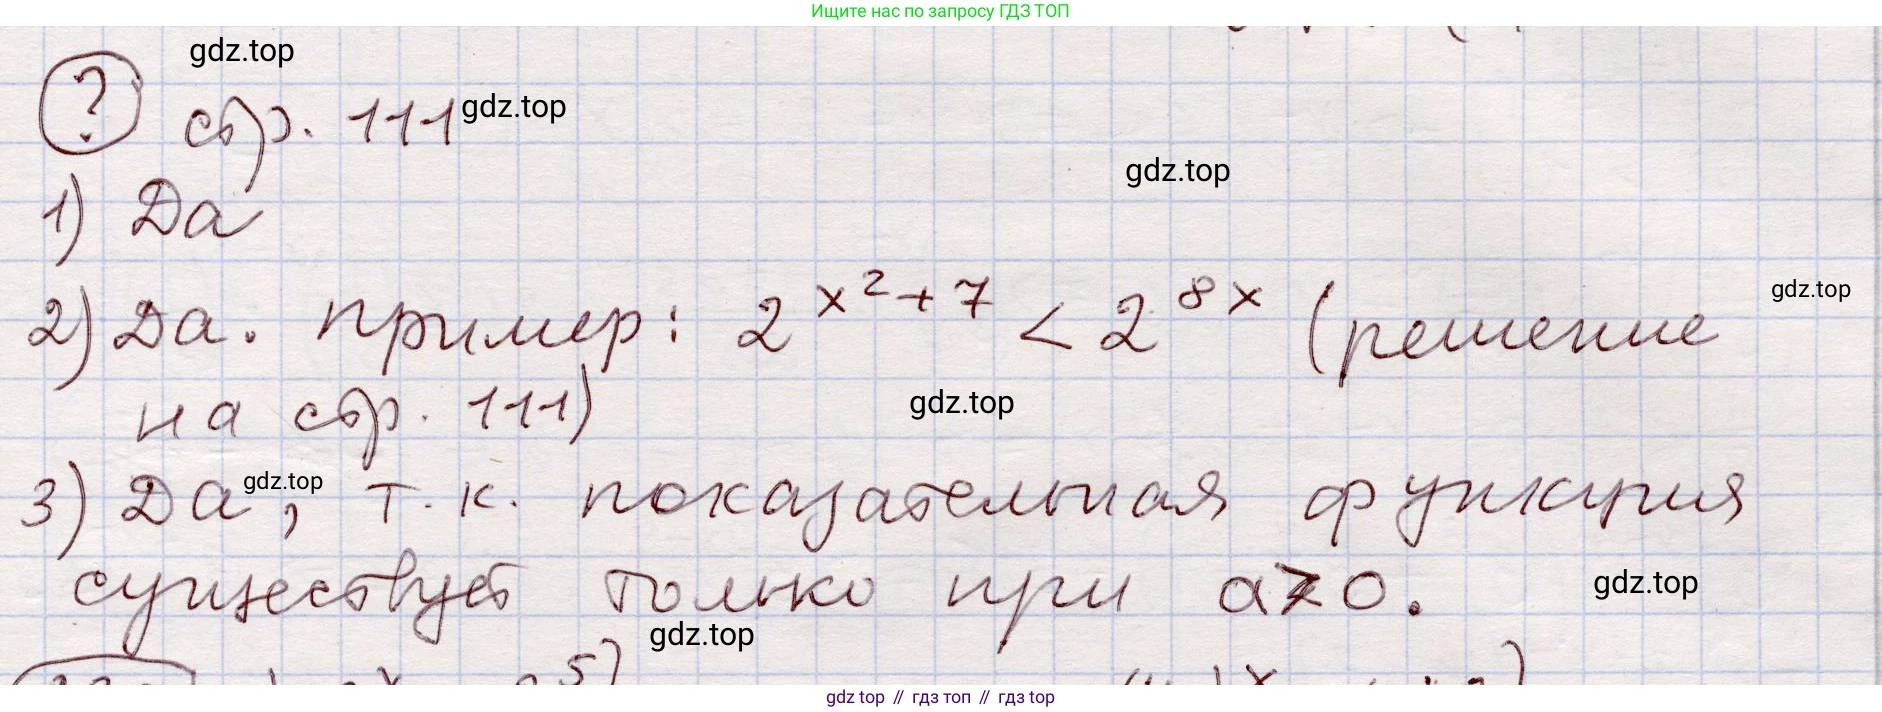 Ищите нас по запросу ГДЗ ТОП
gdz.top
? стр. 111 gdz.top
gdz.top
1) Да
2) Да. Пример: 2^{x^2+7} < 2^{8x} (решение gdz.top
на стр. 111)
gdz.top
3) Да gdz.top, т.к. показательная функция
существует только при a>0.
gdz.top
gdz.top
gdz top // гдз топ // гдз top